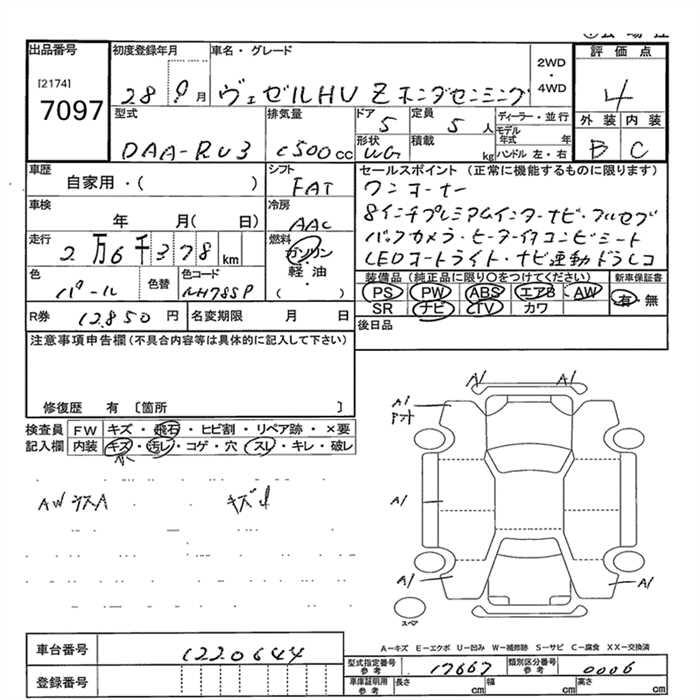 出品番号 初度登録年月 車名・グレード 2WD・4WD 評価点
[2174]
7097
28 9月 ヴェゼルHV Z ホンダセンシング 4
型式 排気量 ドア 5 定員 5人 ディーラー・並行 外装 内装
モデル年式 年
DAA-RU3 1500cc 形状 WG 積載 kg ハンドル 左・右 B C
車歴 シフト セールスポイント(正常に機能するものに限ります)
自家用・( ) FAT ワンオーナー
車検 冷房 8インチプレミアムインターナビ・フルセグ
年 月( 日) AAC
走行 燃料 バックカメラ・ヒーター付コンビシート
2万6千378km ガソリン・軽油・( ) LEDオートライト・ナビ連動ドラレコ
色 色替 色コード 装備品(純正品に限り○をつけてください) 新車保証書
パール NH788P PS PW ABS エアB AW 有・無
SR ナビ TV カワ
R券 12850円 名変期限 月 日 後日品
注意事項申告欄(不具合内容等は具体的に記入して下さい)
修復歴 有 〔箇所 〕
検査員記入欄 FW キズ・飛石・ヒビ割・リペア跡・×要
内装 キズ・汚レ・コゲ・穴・スレ・キレ・破レ
A1 A1
A1
AWシスA キズ小
A1
A1 A1
スペア
A-キズ E-エクボ U-凹み W-補修跡 S-サビ C-腐食 XX-交換済
車台番号 1220644
型式指定番号 参考 17667 類別区分番号 参考 0006
登録番号 車庫証明用 参考 長さ cm 幅 cm 高さ cm